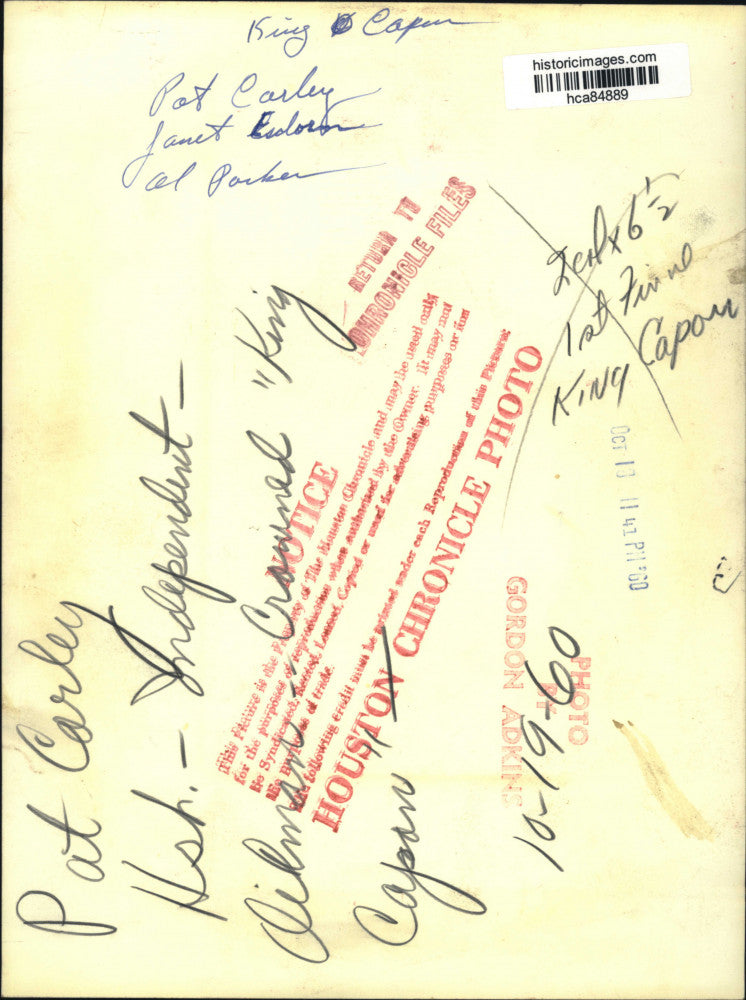 King Capon
historicimages.com
hca84889
Pat Carley
Janet
Al Parker
RETURN TO
CHRONICLE FILES
2 col x 6 1/2
1st Final
KING Capon
Oct 18 11 41 PM '60
NOTICE
This Picture is the Property of The Houston Chronicle and may be used only
for the purposes of reproduction when authorized by the Owner. It may not
be Syndicated, Rented, Loaned, Copied or used for advertising purposes or for
the purpose of trade.
The following credit must be printed under each Reproduction of this Picture:
HOUSTON CHRONICLE PHOTO
PHOTO
BY
GORDON ADKINS
10-19-60
Pat Carley
Hsh. - Independent -
Oilman - Crowned "King
Capon"